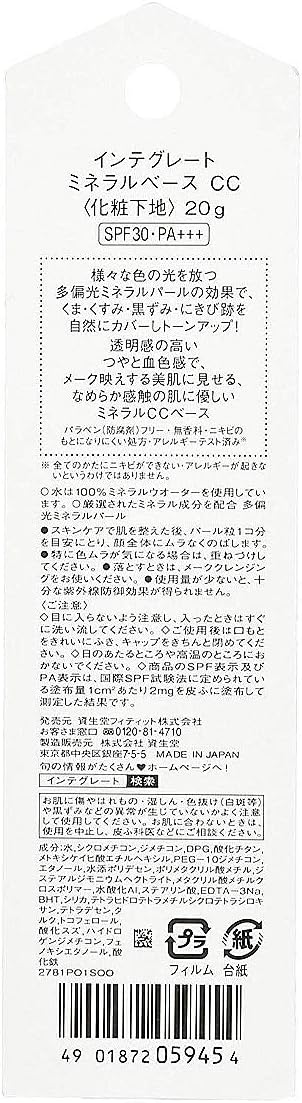 インテグレート
ミネラルベース CC
〈化粧下地〉20g
SPF30・PA+++
様々な色の光を放つ
多偏光ミネラルパールの効果で、
くま・くすみ・黒ずみ・にきび跡を
自然にカバーしトーンアップ!
透明感の高い
つやと血色感で、
メーク映えする美肌に見せる、
なめらか感触の肌に優しい
ミネラルCCベース
パラベン(防腐剤)フリー・無香料・ニキビの
もとになりにくい処方・アレルギーテスト済み※
※ 全てのかたにニキビができない・アレルギーが起きな
いというわけではありません。
○水は100%ミネラルウオーターを使用してい
ます。○厳選されたミネラル成分を配合 多偏
光ミネラルパール
●スキンケアで肌を整えた後、パール粒1コ分
を目安にとり、顔全体にムラなくのばします。
●特に色ムラが気になる場合は、重ねづけし
てください。●落とすときは、メーククレンジン
グをお使いください。●使用量が少ないと、十
分な紫外線防御効果が得られません。
〈ご注意〉
◇目に入らないよう注意し、入ったときはすぐ
に洗い流してください。◇ご使用後は口もと
をきれいにふき、キャップをきちんと閉めてくだ
さい。◇日のあたるところや高温のところにお
かないでください。◇商品のSPF表示及び
PA表示は、国際SPF試験法に定められてい
る塗布量1cm²あたり2mgを皮ふに塗布して
測定した結果です。
発売元 資生堂フィティット株式会社
お客さま窓口 0120-81-4710
製造販売元 株式会社 資生堂
東京都中央区銀座7-5-5 MADE IN JAPAN
旬の情報がたくさん♥ホームページへ!
インテグレート 検索
お肌に傷やはれもの・湿しん・色抜け(白斑等)
や黒ずみなどの異常が生じていないかよく注意
して使用してください。お肌に合わないときは、
使用を中止し、皮ふ科医などにご相談ください。
成分:水,シクロメチコン,ジメチコン,DPG,酸化チタン,
メトキシケイヒ酸エチルヘキシル,PEG-10ジメチコン,
エタノール,水添ポリデセン,ポリメタクリル酸メチル,ジ
ステアルジモニウムヘクトライト,メタクリル酸メチルク
ロスポリマー,水酸化Al,ステアリン酸,EDTA-3Na,
BHT,シリカ,テトラヒドロテトラメチルシクロテトラシロキ
サン,テトラデセン,タ
ルク,トコフェロール,
酸化スズ,ハイドロ
ゲンジメチコン,フェ
ノキシエタノール,酸
化鉄
2781P01S00
プラ 紙
フィルム 台紙
4901872059454